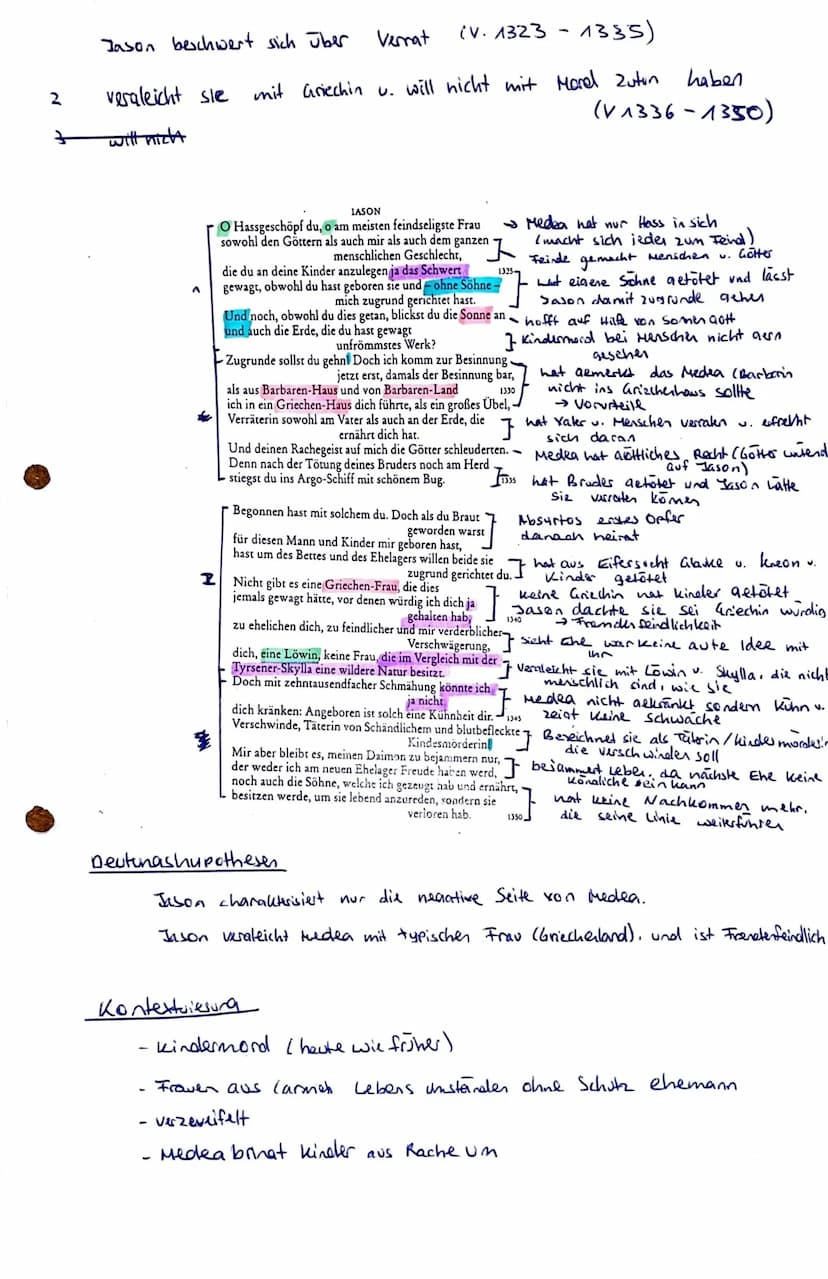 Jason beschwert sich über Verrat (V. 1323 - 1335)
2 vergleicht sie mit Griechin u. will nicht mit Mord zutun haben
(V 1336 - 1350)
3 will nicht
IASON
O Hassgeschöpf du, o am meisten feindseligste Frau
sowohl den Göttern als auch mir als auch dem ganzen
menschlichen Geschlecht,
die du an deine Kinder anzulegen ja das Schwert 1325
gewagt, obwohl du hast geboren sie und – ohne Söhne –
mich zugrund gerichtet hast.
Und noch, obwohl du dies getan, blickst du die Sonne an
und auch die Erde, die du hast gewagt
unfrömmstes Werk?
Zugrunde sollst du gehn! Doch ich komm zur Besinnung
jetzt erst, damals der Besinnung bar,
als aus Barbaren-Haus und von Barbaren-Land 1330
ich in ein Griechen-Haus dich führte, als ein großes Übel,
Verräterin sowohl am Vater als auch an der Erde, die
ernährt dich hat.
Und deinen Rachegeist auf mich die Götter schleuderten.
Denn nach der Tötung deines Bruders noch am Herd
stiegst du ins Argo-Schiff mit schönem Bug. 1335
→ Medea hat nur Hass in sich
(macht sich jeden zum Feind)
Feinde gemacht Menschen u. Götter
hat eigene Söhne getötet und lässt
Jason damit zugrunde gehen
hofft auf Hilfe von Sonnengott
Kindermord bei Menschen nicht gern
gesehen
hat gemerkt das Medea (Barbarin
nicht ins Griechenhaus sollte
→ Vorurteile
hat Vater u. Menschen verraten u. erfreut
sich daran
Medea hat göttliches Recht (Götter wütend
auf Jason)
hat Bruder getötet und Jason hätte
sie verraten können
Begonnen hast mit solchem du. Doch als du Braut
geworden warst
für diesen Mann und Kinder mir geboren hast,
hast um des Bettes und des Ehelagers willen beide sie
zugrund gerichtet du.
Nicht gibt es eine Griechen-Frau, die dies
jemals gewagt hätte, vor denen würdig ich dich ja
gehalten hab, 1340
zu ehelichen dich, zu feindlicher und mir verderblicher
Verschwägerung,
dich, eine Löwin, keine Frau, die im Vergleich mit der
Tyrsener-Skylla eine wildere Natur besitzt.
Doch mit zehntausendfacher Schmähung könnte ich
ja nicht
dich kränken: Angeboren ist solch eine Kühnheit dir. 1345
Verschwinde, Täterin von Schändlichem und blutbefleckte
Kindesmörderin!
Mir aber bleibt es, meinen Daimon zu bejammern nur,
der weder ich am neuen Ehelager Freude haben werd,
noch auch die Söhne, welche ich gezeugt hab und ernährt,
besitzen werde, um sie lebend anzureden, sondern sie
verloren hab. 1350
Absyrtos erstes Opfer
danach heirat
hat aus Eifersucht Glauke u. Kreon u.
Kinder getötet
Keine Griechin hat Kinder getötet
Jason dachte sie sei Griechin würdig
→ Fremdenfeindlichkeit
sieht Ehe war keine gute Idee mit
ihr
vergleicht sie mit Löwin u. Skylla, die nicht
menschlich sind, wie sie
Medea nicht gekränkt sondern kühn u.
zeigt keine schwäche
Bezeichnet sie als Täterin / Kindesmörderin
die verschwinden soll
bejammert Leben, da nächste Ehe keine
königliche sein kann
hat keine Nachkommen mehr,
die seine Linie weiterführen
Deutungshypothesen
Jason charakterisiert nur die negative Seite von Medea.
Jason vergleicht Medea mit typischen Frau (Griechenland), und ist Fremdenfeindlich
Kontextuierung
- Kindermord (heute wie früher)
- Frauen aus (armen Lebens umständen ohne Schutz ehemann
- verzweifelt
- Medea bringt Kinder aus Rache um